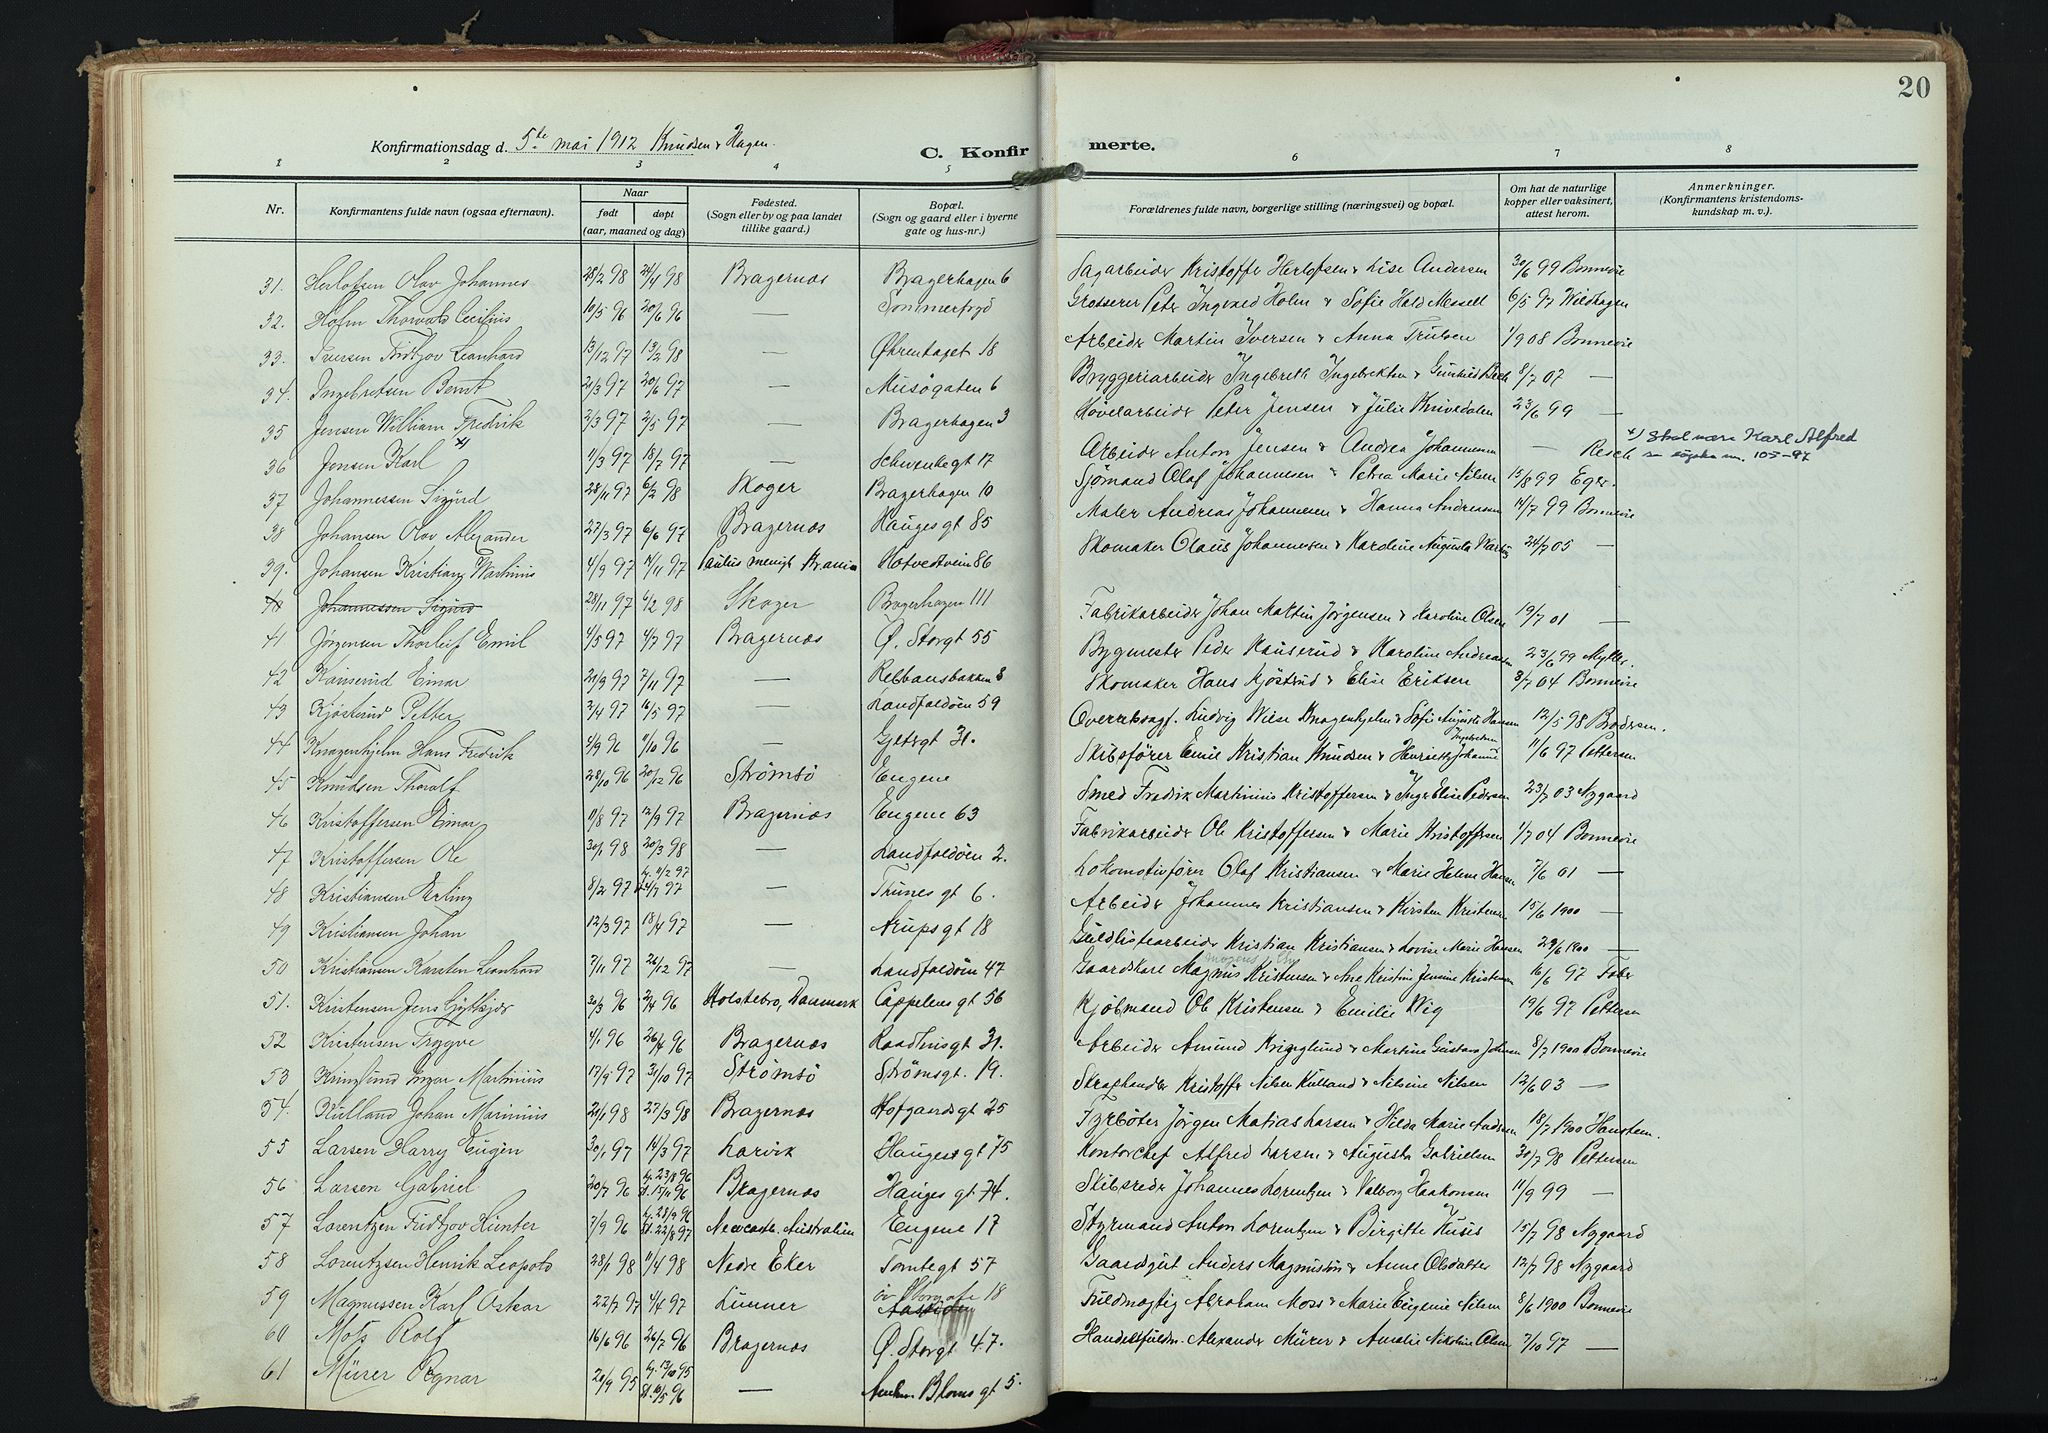 20
Konfirmationsdag d. 5te mai 1912 Knudsen & Hagen.
C. Konfirmerte.
1 2 3 4 5 6 7 8
Nr. Konfirmantens fulde navn (ogsaa efternavn). Naar født døpt (aar, maaned og dag) Fødested. (Sogn eller by og paa landet tillike gaard.) Bopæl. (Sogn og gaard eller i byerne gate og hus-nr.) Forældrenes fulde navn, borgerlige stilling (næringsvei) og bopæl. Om hat de naturlige kopper eller vaksinert, attest herom. Anmerkninger. (Konfirmantens kristendomskundskap m. v.).
31. Herlofsen Olav Johannes 28/2 98 24/4 98 Bragernæs Bragerhagen 6 Sagarbeider Kristoffer Herlofsen & Lise Andersen 30/6 99 Bonnevie
32. Holm Thorvald Cecilius 10/5 96 20/6 96 — Sommerfryd Grosserer Peter Ingvald Holm & Sofie Hald Mesell 6/5 97 Wildhagen
33. Iversen Fridtjov Leonhard 13/12 97 13/2 98 — Øhrentaget 18 Arbeider Martin Iversen & Anna Trulsen 1/9 08 Bonnevie
34. Ingebretsen Bernt 21/3 97 20/6 97 — Musøgaten 6 Bryggeriarbeider Ingebreth Ingebretsen & Gunhild Bech 8/7 07 —
35 Jensen William Fredrik 2/3 97 2/5 97 Bragerhagen 3 Høvelarbeider Peter Jensen & Julie Knivedalen 23/6 99 —
36 Jensen Karl x) 1/3 97 18/7 97 Schwenkegt 17 Arbeider Anton Jensen & Andrea Johannesen — Resch x) Skal være Karl Alfred se døpte nr. 105-97
37 Johannessen Sigurd 28/11 97 6/2 98 Skoger Bragerhagen 10 Sjømand Olaf Johannesen & Petrea Marie Nilsen 15/8 99 Eger.
38 Johansen Olav Alexander 27/3 97 6/6 97 Bragernæs Haugesgt 85 Maler Andreas Johannesen & Hanna Andreasen 14/7 99 Bonnevie
39. Johansen Kristian Martinius 4/9 97 14/11 97 Paulus menigh Kr.ania Hotvedtvein 86 Skomaker Olaus Johannesen & Karoline Augusta 24/7 05 —
40 Johannessen Sigurd 28/11 97 6/2 98 Skoger Bragerhagen 111
41 Jørgensen Thorleif Emil 4/5 97 4/7 97 Bragernæs Ø. Storgt 55 Fabrikarbeider Johan Martin Jørgensen & Karoline Olsen 19/7 01 —
42 Hauserud Einar 21/9 97 7/11 97 — Rebbansbakken 8 Bygmester Peder Hauserud & Karoline Andreasen 23/6 99 Myhre.
43 Kjøsterud Petter 2/4 97 16/5 97 — Landfaldøen 59 Skomaker Hans Kjøsterud & Elise Eriksen 3/7 04 Bonnevie
44 Knagenhjelm Hans Fredrik 4/9 96 11/10 96 — Gjetergt 31. Overretssagf. Ludvig Wiese Knagenhjelm & Sofie Augusta Hansen 12/5 98 Brodersen.
45 Knudsen Thoralf 28/10 96 20/12 96 Strømsø Engene Skibsfører Emil Kristian Knudsen & Henriette Johanne Ingebretsen 11/6 97 Pettersen
46 Kristoffersen Einar 11/8 97 12/9 97 Bragernæs Engene 63 Smed Fredrik Martinius Kristoffersen & Inger Elise Pedersen 23/7 03 Nygaard
47 Kristoffersen Ole 30/1 98 20/3 98 — Landfaldøen 2. Fabrikarbeider Ole Kristoffersen & Marie Kristoffersen 1/7 04 Bonnevie
48 Kristiansen Erling 8/2 97 hj. 11/2 97 st. 4/7 97 — Thunes gt 6. Lokomotivfører Olaf Kristiansen & Marie Helene Hansen 7/6 01 —
49 Kristiansen Johan 12/3 97 18/4 97 — Arupsgt 18 Arbeider Johannes Kristiansen & Kirsten Kristensen 15/6 1900 —
50 Kristiansen Karsten Leonhard 7/11 97 26/12 97 — Landfaldøen 47 Guldlistearbeider Kristian Kristiansen & Lovise Marie Hansen 29/6 1900 —
51. Kristensen Jens 30/3 96 2/4 96 Holstebro, Danmark Cappelens gt 56 Gaardskarl Magnus Kristensen & Ane Kristine Jensine Kristensen 16/6 97 Faber
52 Kristensen Trygve 4/1 96 26/4 96 Bragernæs Raadhusgt 31. Kjøbmand Ole Kristensen & Emilie Wig 19/6 97 Pettersen
53 Kringlund Ingar Martinius 17/9 97 31/10 97 Strømsø Strømsgt. 19. Arbeider Amund Kringlund & Martine Gustava Johnsen 8/7 1900 Bonnevie
54. Kulland Johan Marinius 21/1 98 27/3 98 Bragernæs Hofgaardsgt 25 Skraphandler Kristoffer Nilsen Kulland & Nilsine Nilsen 12/6 03 —
55 Larsen Harry Eugen 30/1 97 14/3 97 Larvik Hauges gt 75 Fyrbøter Jørgen Matias Larsen & Hilda Marie Andersen 18/7 1900 Hansteen.
56 Larsen Gabriel 20/7 96 hj. 23/8 96 st. 15/11 96 Bragernæs Hauges gt 74. Kontorchef Alfred Larsen & Augusta Gabrielsen 30/7 98 Pettersen
57 Lorentzen Fridtjov Hunter 7/9 96 hj. 28/9 96 st. 22/8 97 Newcastle. Australien Engene 17 Skibsreder Johannes Lorentzen & Valborg Haakonsen 11/9 99 —
58 Lorentzsen Henrik Leopold 28/1 98 11/4 98 Nedre Eker Tomtegt 57 Styrmand Anton Lorentzen & Birgitte Kusis 15/7 98 Nygaard
59 Magnussen Karl Oskar 22/2 97 4/4 97 Lunner øv Storgate 18 Gaardsgut Anders Magnusson & Anne Olsdatter 12/7 98 Nygaard
60 Moss Rolf 16/6 96 26/7 96 Bragernæs Ø. Storgt 47. Fuldmægtig Abraham Moss & Marie Eugenie Nilsen 8/6 1900 Bonnevie
61 Mürer Ragnar 20/9 95 hj. 13/10 95 st. 10/5 96 — Anchr. Bloms gt 5. Handelsfuldm. Alexander Mürer & Amalie Nikoline Olsen 7/10 97 —